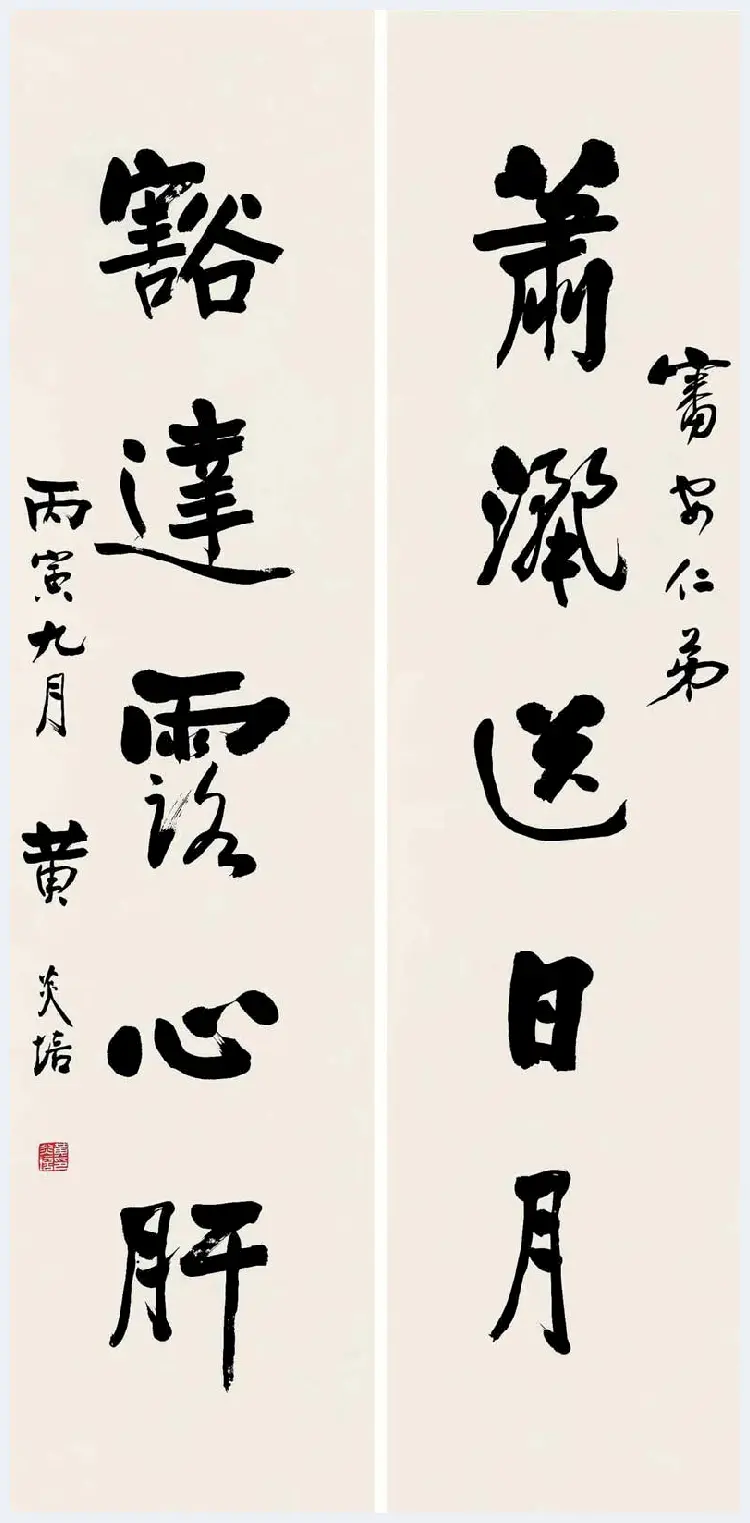 審安仁弟
蕭灑送日月
豁達露心肝
丙寅九月 黄炎培